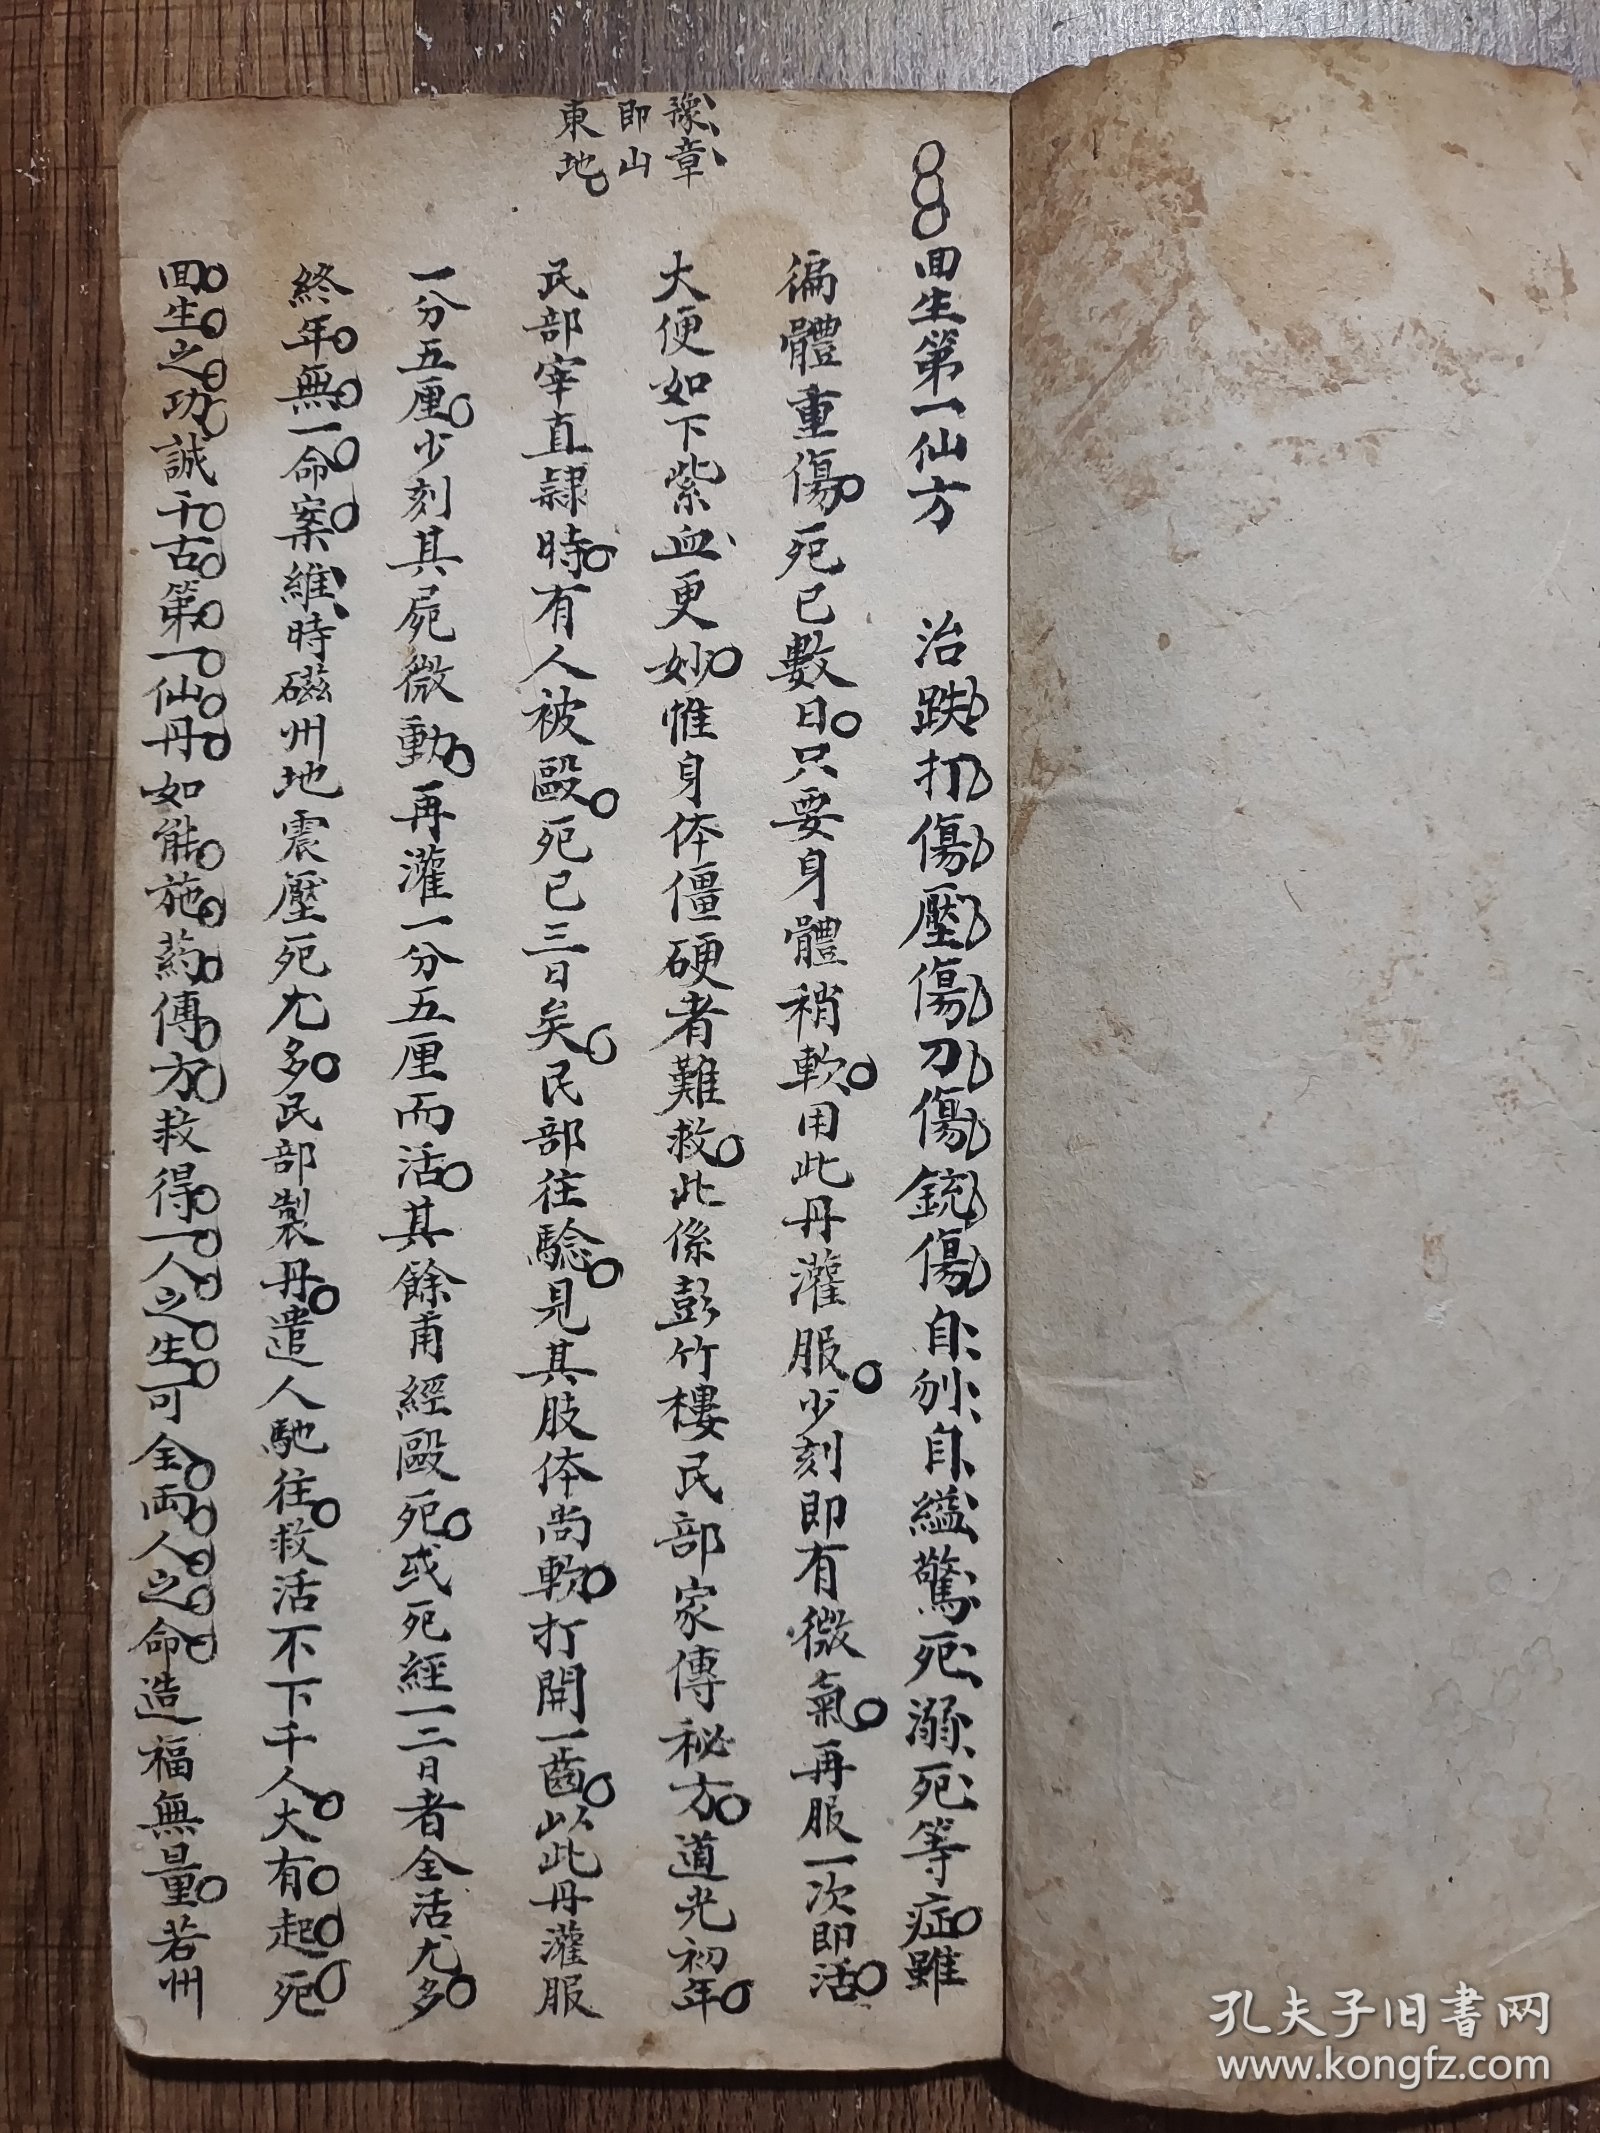 豫章
即山
東地
回生第一仙方　治跌打傷壓傷刀傷銃傷自刎自縊驚死溺死等症雖
徧體重傷死已數日只要身體稍軟用此丹灌服少刻即有微氣再服一次即活
大便如下紫血更妙惟身体僵硬者難救此係彭竹樓民部家傳秘方道光初年
民部宰直隸時有人被毆死已三日矣民部往驗見其肢体尚軟打開一齒以此丹灌服
一分五厘少刻其屍微動再灌一分五厘而活其餘甫經毆死或死經一二日者全活尤多
終年無一命案維時磁州地震壓死尤多民部製丹遣人馳往救活不下千人大有起死
回生之功誠千古第一仙丹如能施药傳方救得一人之生可全兩人之命造福無量若州
孔夫子旧書网
www.kongfz.com